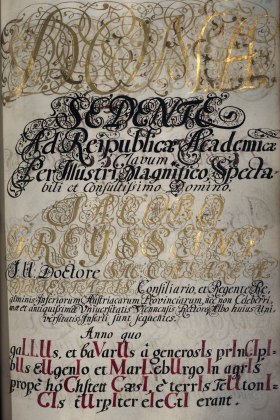 SEDENTE
Ad Reipublicæ Academicæ
Clavum
Per Illustri, Magnifico, Specta-
bili et Consultissimo Domino.
I.U. Doctore
Consiliario, et Regente Re-
giminis Inferiorum Austriacarum Provinciarum, nec non Celeberri-
mæ et antiquissimæ Universitatis Viennensis Rectore, Albo huius Uni-
versitatis Inserti sunt sequentes.
Anno quo
gaLLUs, et baVarUs à generosIs prInCIpI-
bUs eUgenIo et MarLebUrgo In agrIs
propè hoChstett CæsI, è terrIs TeUtonI-
CIs tUrpIter eIeCtI erant.